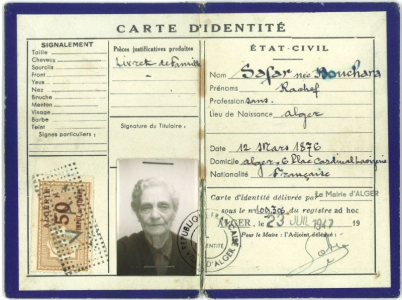 CARTE D'IDENTITÉ
SIGNALEMENT
Taille
Cheveux
Sourcils
Front
Yeux
Nez
Bouche
Menton
Visage
Barbe
Teint
Signes particuliers :
Pièces justificatives produites
Livret de famille
Signature du Titulaire :
ALGÉRIE
50
ÉTAT-CIVIL
Nom Safar née Bouchara
Prénoms Rachel
Profession sans.
Lieu de Naissance Alger
Date 12 Mars 1876
Domicile Alger, 6 Place Cardinal Lavigerie
Nationalité Française
Carte d'identité délivrée par La Mairie d'ALGER
sous le n° 109.306 du registre ad hoc
ALGER, le 23 JUIL 1947 19
Pour le Maire : l'Adjoint délégué :
D'ALGER